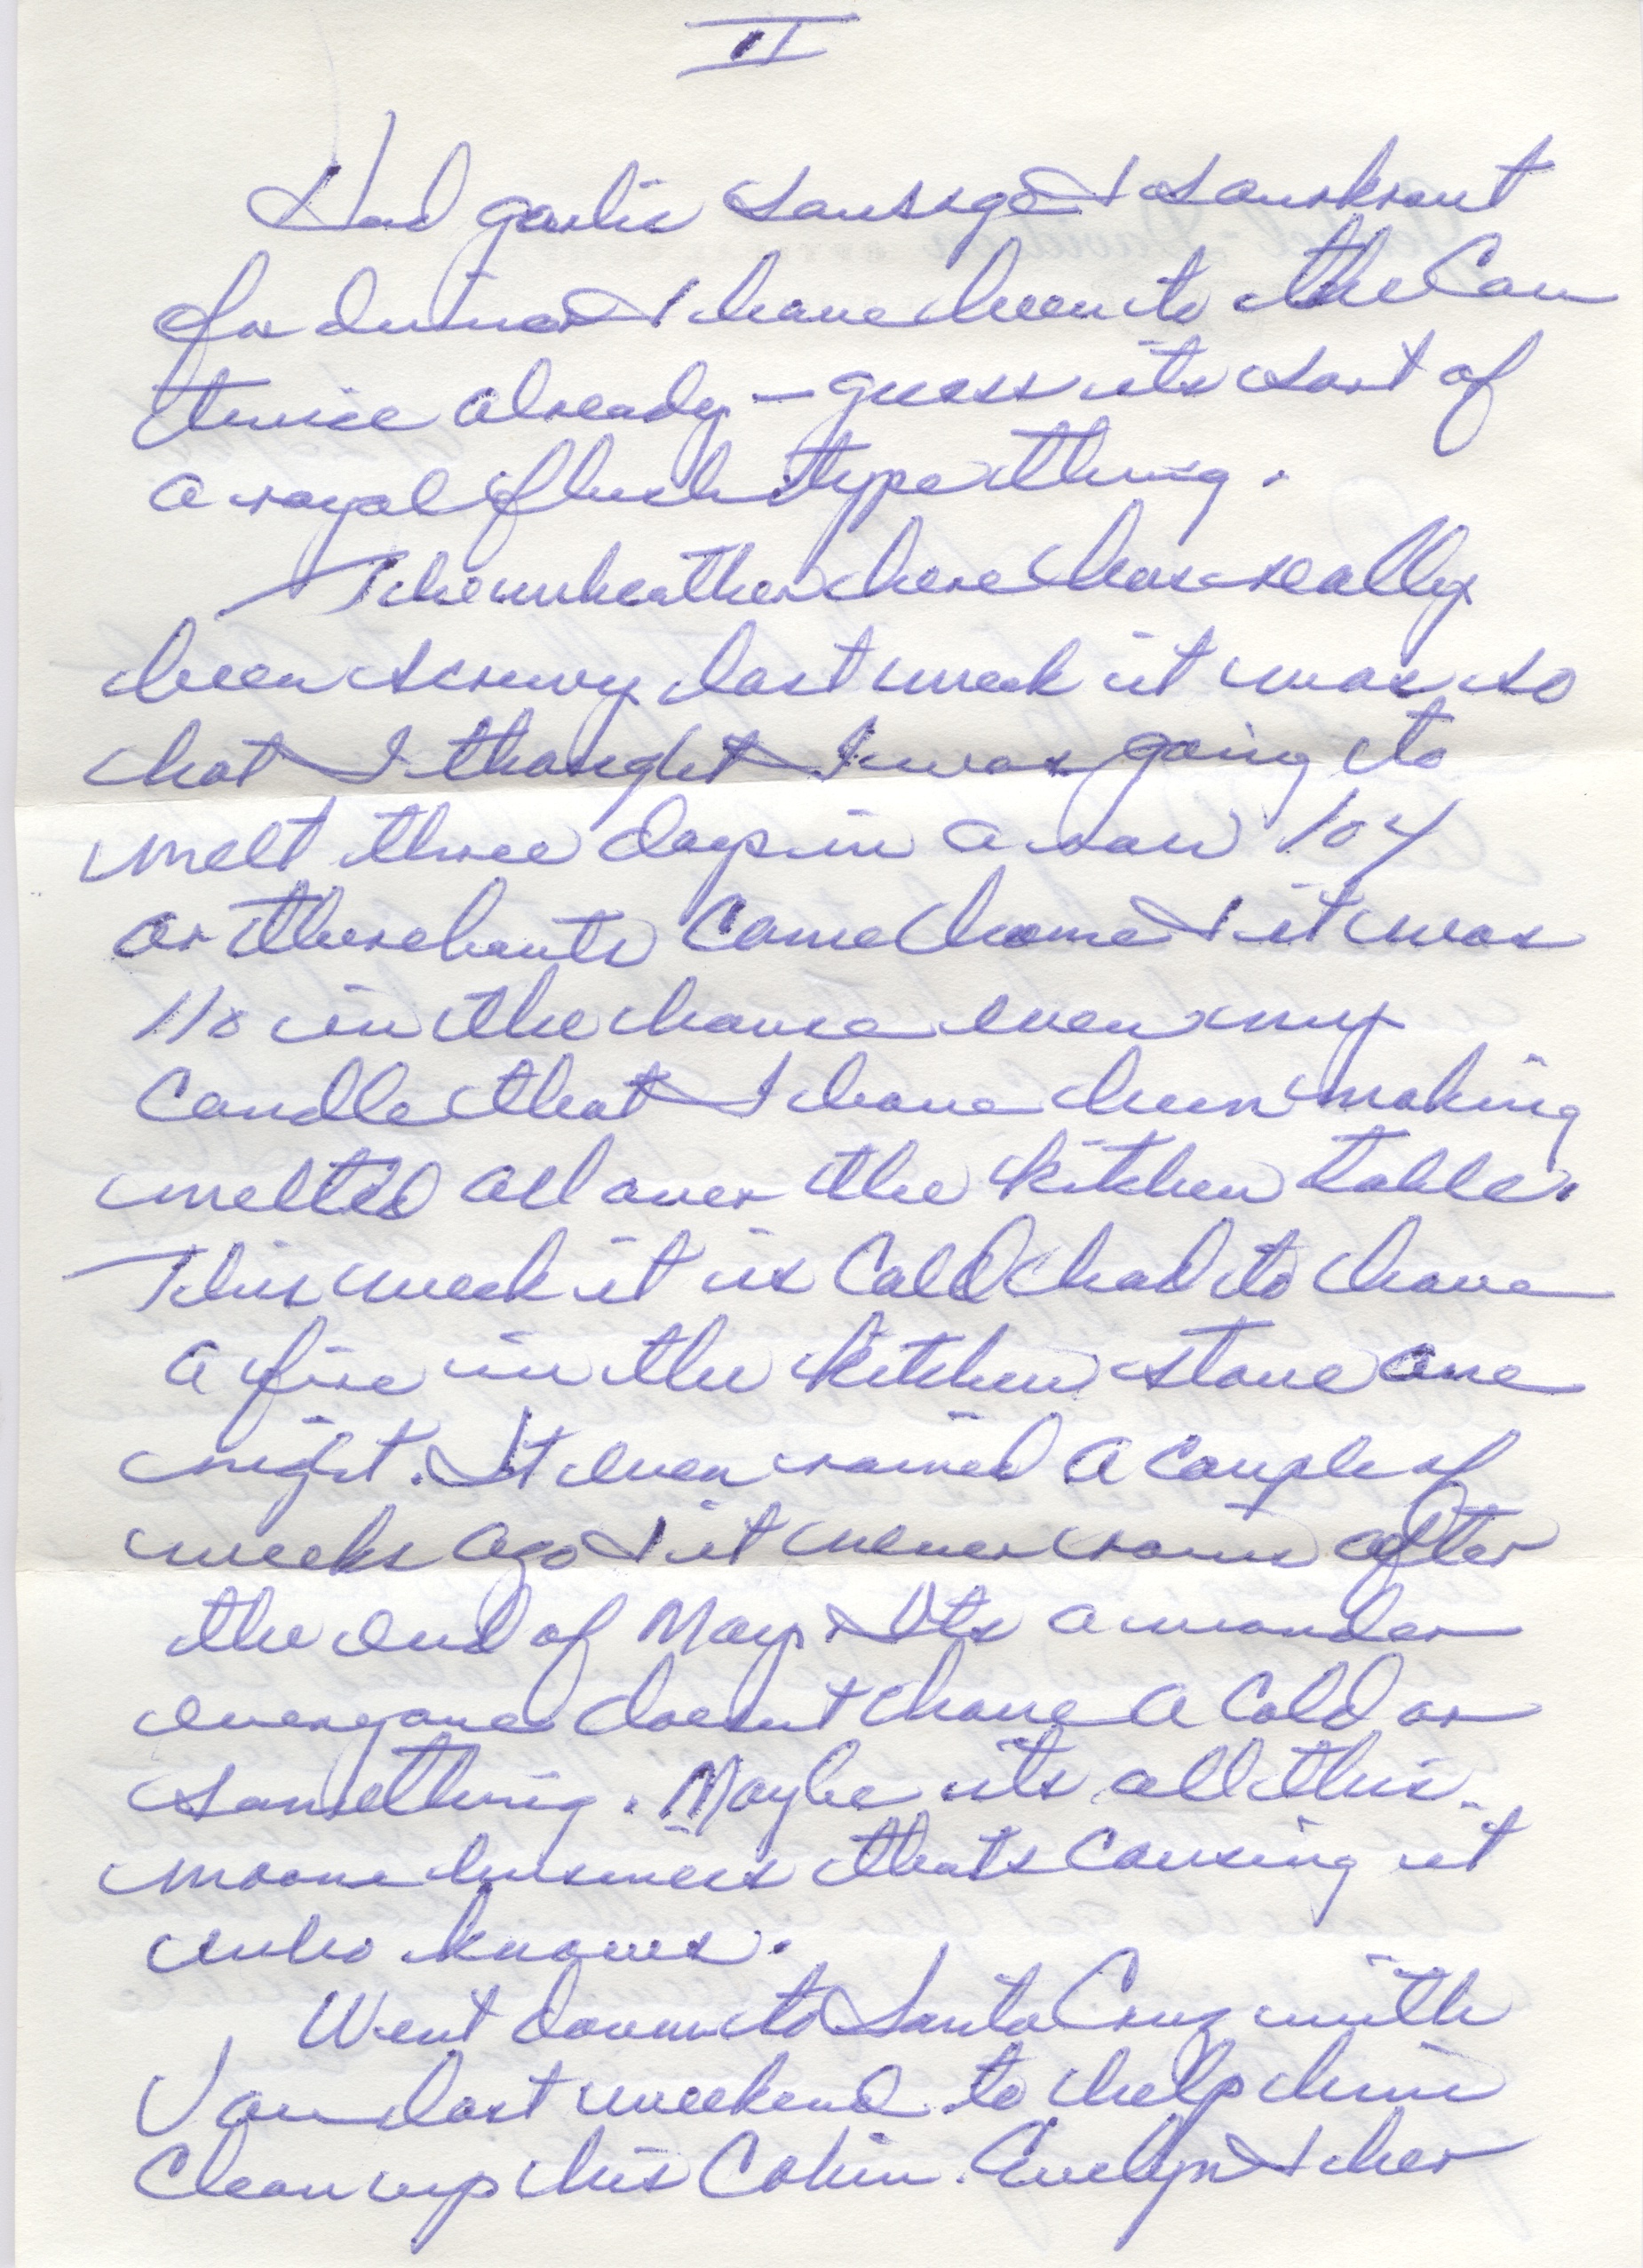 II
Had garlic sausage & saurkraut
for dinner & have been to the Can
twice already - guess its sort of
a royal flush type thing.
The weather here has really
been screwy last week it was so
hot I thought I was going to
melt three days in a row 104
or thereabouts came home & it was
110 in the house even my
candle that I have been making
melted all over the kitchen table.
This week it is cold had to have
a fire in the kitchen stove one
night. It even rained a couple of
weeks ago & it never rains after
the end of May. Its a wonder
everyone doesnt have a cold or
something. Maybe its all this
moon business thats causing it
who knows.
Went down to Santa Cruz with
Van last weekend to help him
clean up his Cabin. Evelyn & her